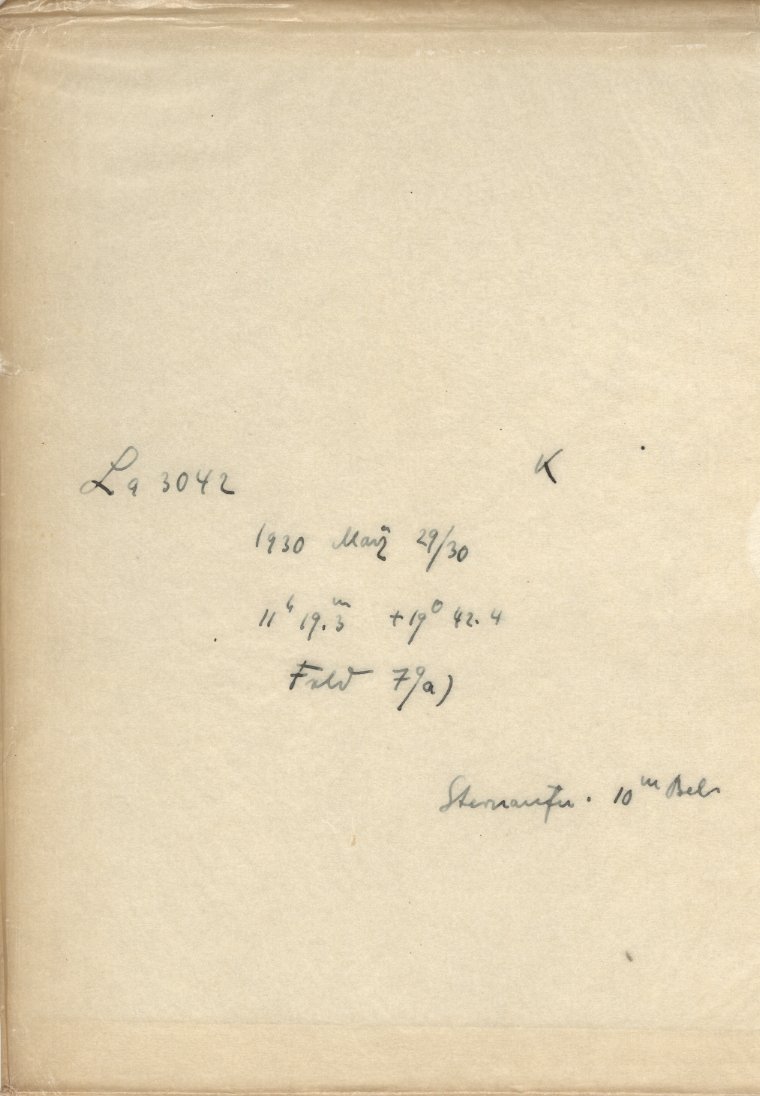 La 3042 K
1930 März 29/30
11ʰ 19.ᵐ3 +19⁰ 42.4
Feld 79a)
Sternaufn. 10ᵐ Bel.